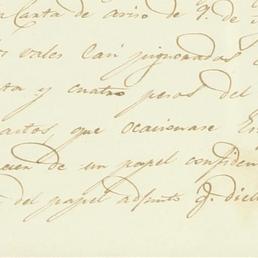 Carta de aviso de q. de
vales Can pignorados
ta y cuatro pesos del
artos, que ocacionase
de un papel confiden
del papel adjunto q. dich